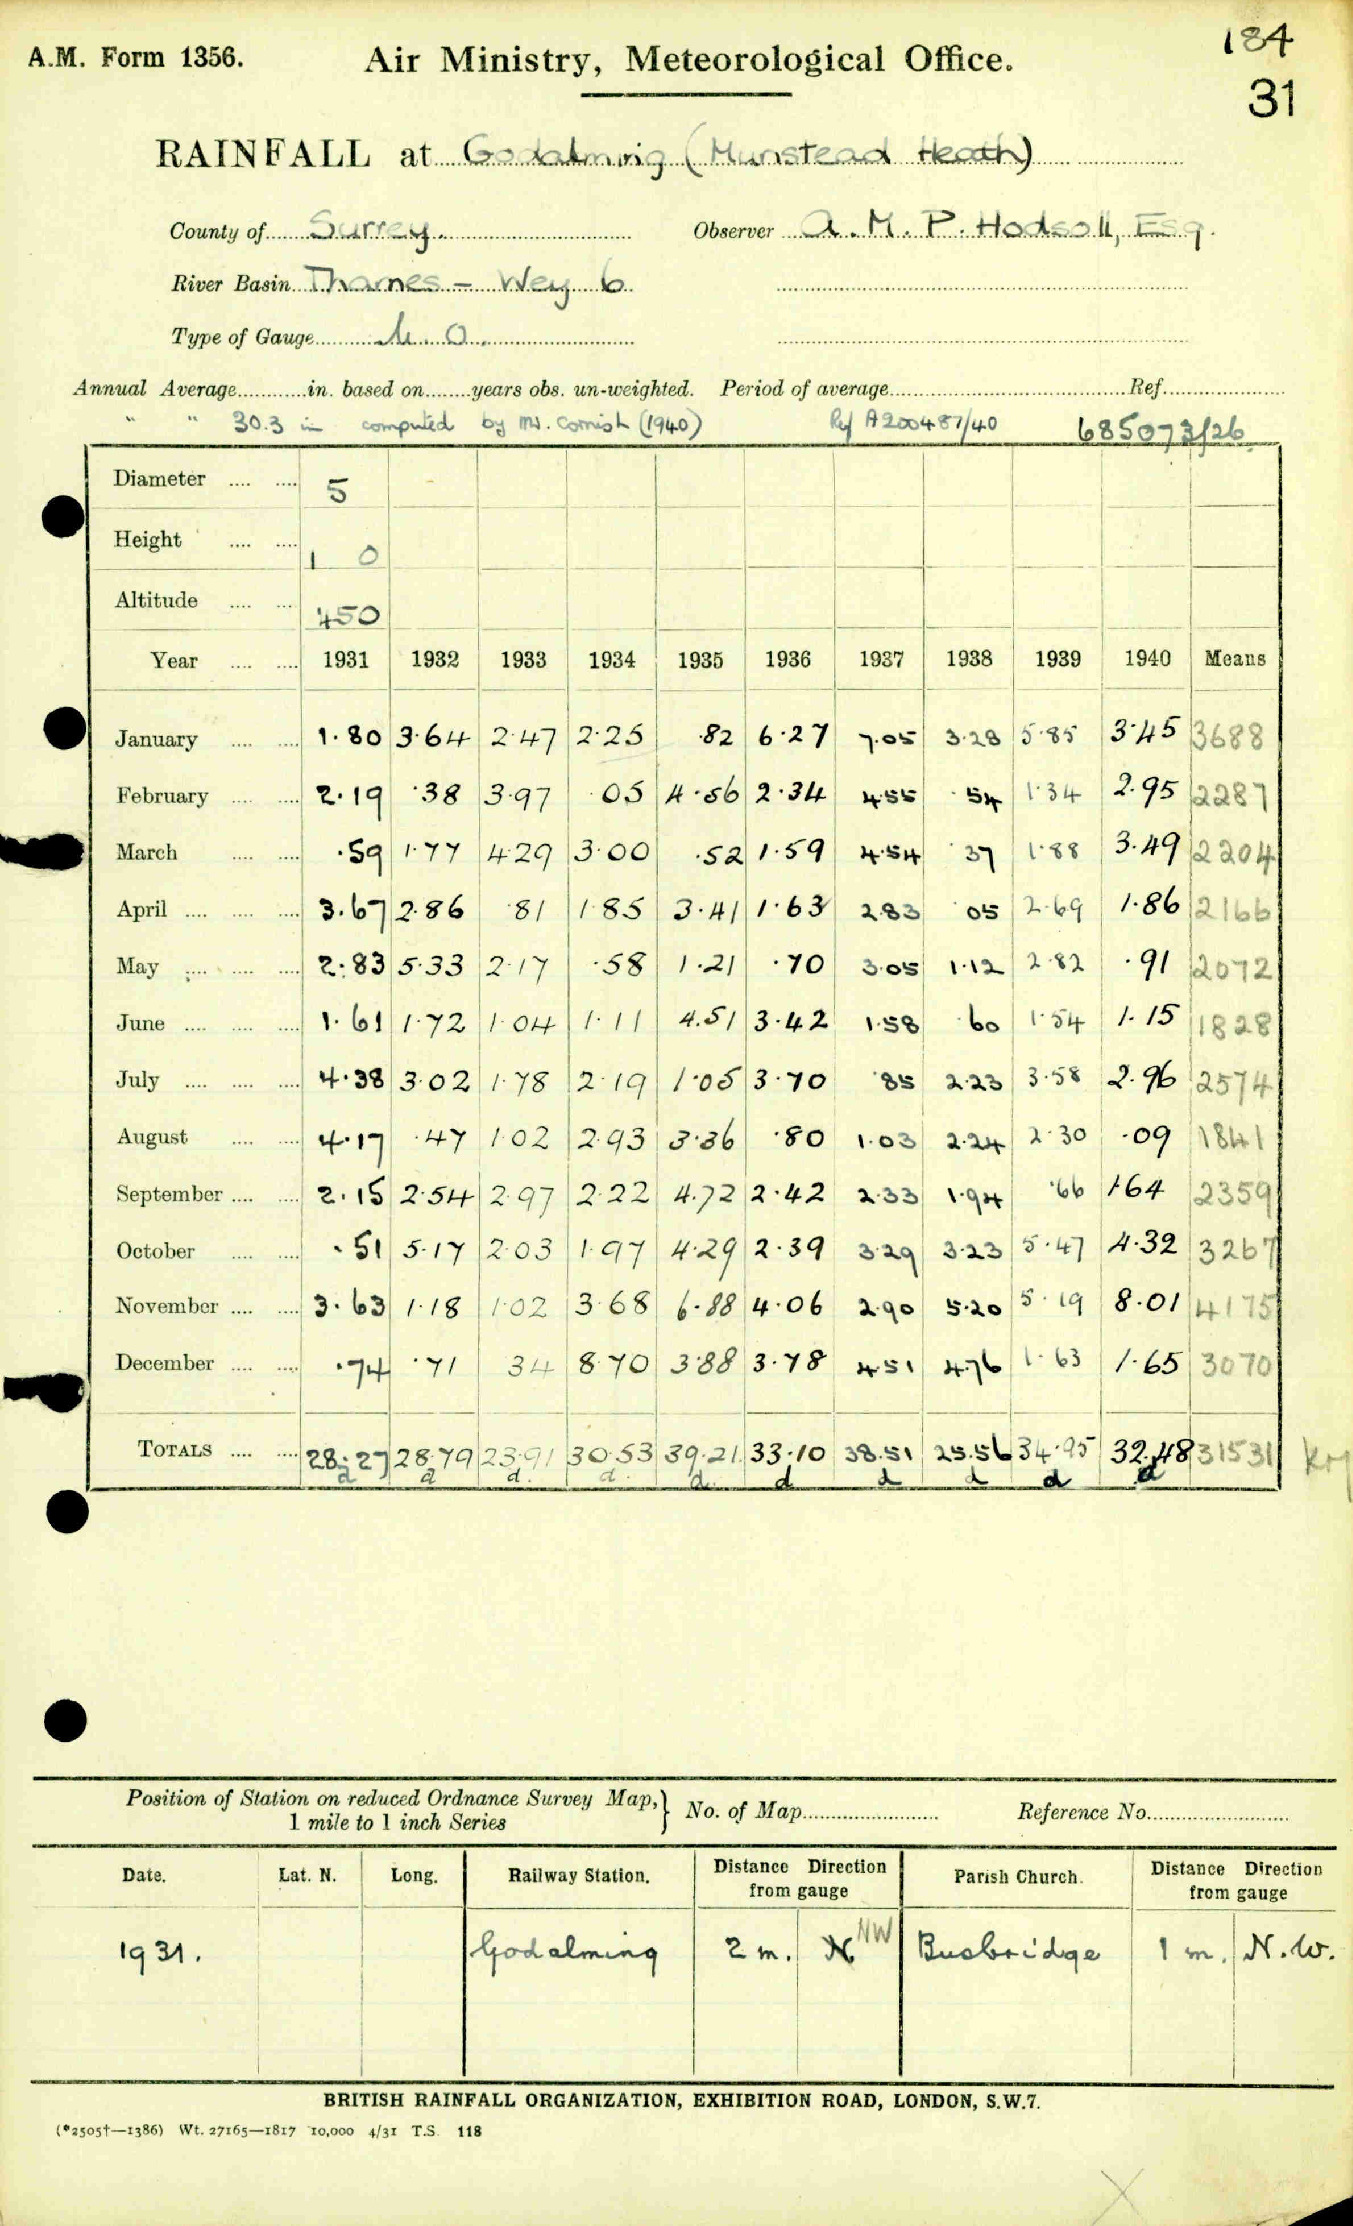 184
A.M. Form 1356. Air Ministry, Meteorological Office.
31
RAINFALL at Godalming (Munstead Heath)
County of Surrey. Observer A. M. P. Hodsoll, Esq.
River Basin Thames - Wey 6
Type of Gauge M.O.
Annual Average in. based on years obs. un-weighted. Period of average Ref.
" " 30.3 in computed by Mr. Cornish (1940) Ref A200487/40 685073/26
Diameter 5
Height 1 0
Altitude 450
Year 1931 1932 1933 1934 1935 1936 1937 1938 1939 1940 Means
January 1.80 3.64 2.47 2.25 .82 6.27 7.05 3.28 5.85 3.45 3688
February 2.19 .38 3.97 .05 4.56 2.34 4.55 .54 1.34 2.95 2287
March .59 1.77 4.29 3.00 .52 1.59 4.54 .37 1.88 3.49 2204
April 3.67 2.86 .81 1.85 3.41 1.63 2.83 .05 2.69 1.86 2166
May 2.83 5.33 2.17 .58 1.21 .70 3.05 1.12 2.82 .91 2072
June 1.61 1.72 1.04 1.11 4.51 3.42 1.58 .60 1.54 1.15 1828
July 4.38 3.02 1.78 2.19 1.05 3.70 .85 2.23 3.58 2.96 2574
August 4.17 .47 1.02 2.93 3.36 .80 1.03 2.24 2.30 .09 1841
September 2.15 2.54 2.97 2.22 4.72 2.42 2.33 1.94 .66 1.64 2359
October .51 5.17 2.03 1.97 4.29 2.39 3.29 3.23 5.47 4.32 3267
November 3.63 1.18 1.02 3.68 6.88 4.06 2.90 5.20 5.19 8.01 4175
December .74 .71 34 8.70 3.88 3.78 4.51 4.76 1.63 1.65 3070
TOTALS 28.27 28.79 23.91 30.53 39.21 33.10 38.51 25.56 34.95 32.48 31531
d d d. d. d. d d d d d
Position of Station on reduced Ordnance Survey Map, } No. of Map Reference No.
1 mile to 1 inch Series
Date. Lat. N. Long. Railway Station. Distance Direction from gauge Parish Church. Distance Direction from gauge
1931. Godalming 2 m. N NW Busbridge 1 m. N.W.
BRITISH RAINFALL ORGANIZATION, EXHIBITION ROAD, LONDON, S.W.7.
(*2505†—1386) Wt. 27165—1817 10,000 4/31 T.S. 118